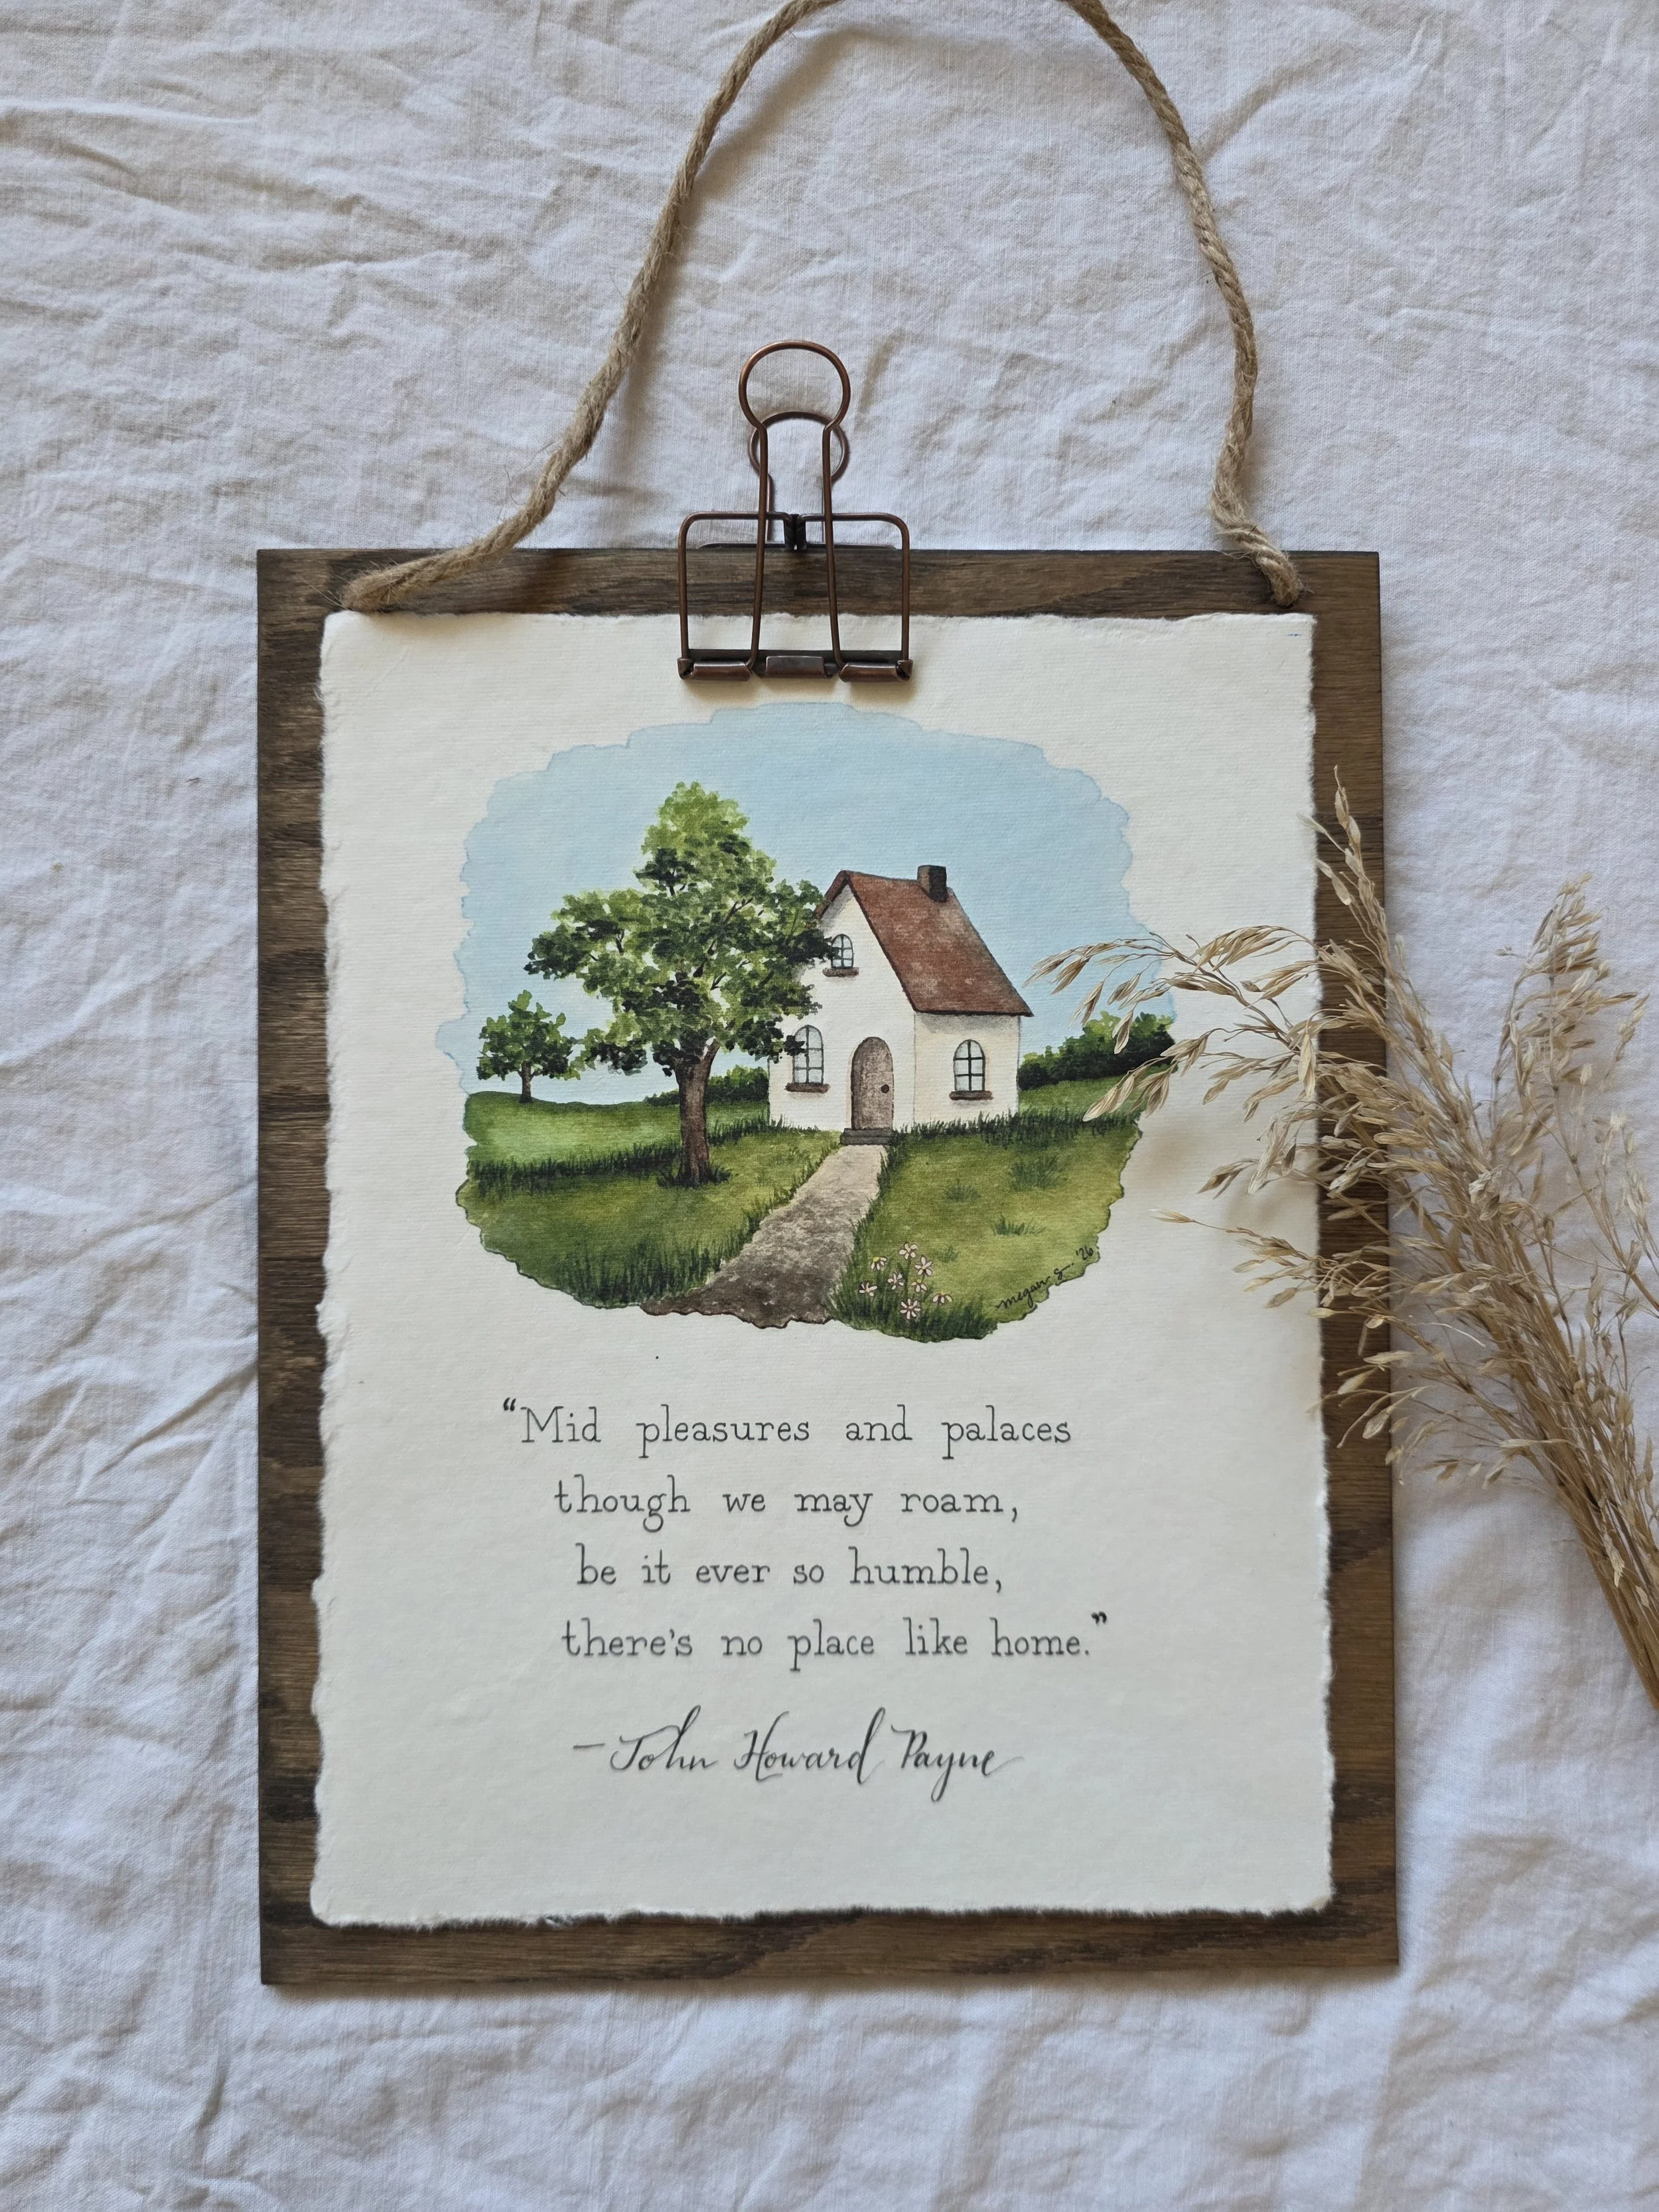 megan g. '26
“Mid pleasures and palaces
though we may roam,
be it ever so humble,
there's no place like home.”
—John Howard Payne